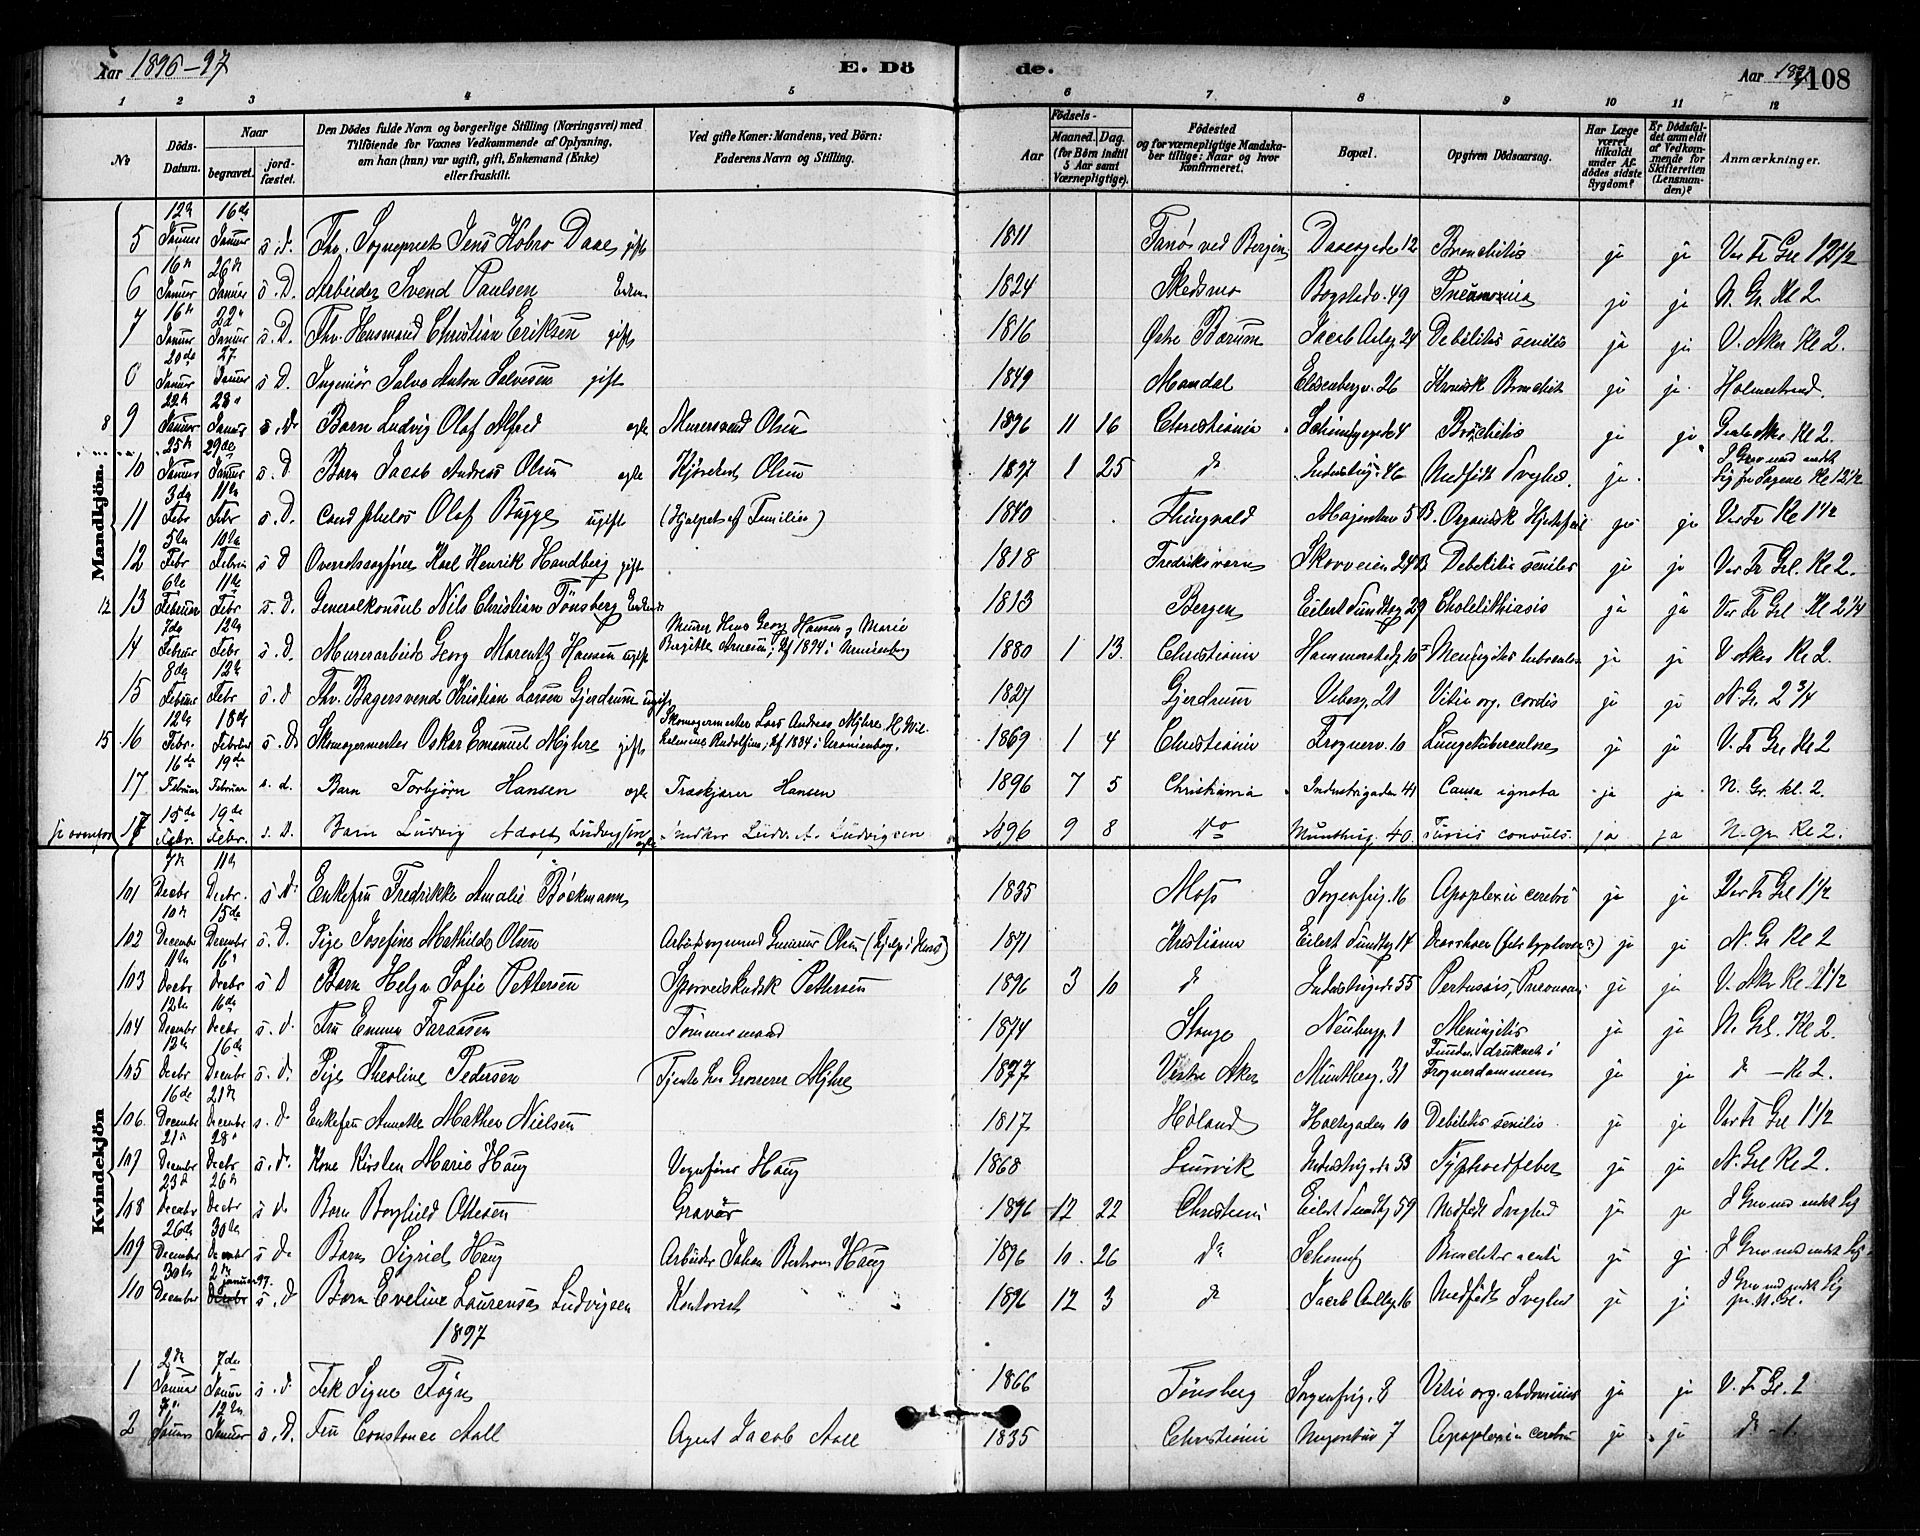 Aar 1896-97
E. Dö
de.
Aar 1897
108
1 2 3 4 5 6 7 8 9 10 11 12
No
Döds-Datum.
Naar begravet. jordfæstet.
Den Dödes fulde Navn og borgerlige Stilling (Næringsvei) med Tilföiende for Voxnes Vedkommende af Oplysning, om han (hun) var ugift, gift, Enkemand (Enke) eller fraskilt.
Ved gifte Koner: Mandens, ved Börn: Faderens Navn og Stilling.
Födsels-
Aar
Maaned. Dag.
(for Börn indtil 5 Aar samt Værnepligtige).
Födested og for værnepligtige Mandskaber tillige: Naar og hvor konfirmeret.
Bopæl.
Opgiven Dödsaarsag.
Har Læge været tilkaldt under Afdödes sidste Sygdom?
Er Dödsfaldet anmeldt af Vedkommende for Skifteretten (Lensmanden)?
Anmærkninger.
Mandkjön.
5 12te Januar 16de Januar s. d. Fhv. Sogneprest Jens Holbro Daae, gift 1811 Fanös ved Bergen Daaesgade 12 Bronchitis ja ja Vor Fr Grl 1 2 1/2
6 16de Januar 26de Januar s. D. Arbeider Svend Paulsen Enkem 1824 Skedsmo Bogstadv. 49 Pneumonia ja ja N. Gr. Kl 2
7 16de Januar 22de Januar s. D. Fhv. Husmand Christian Eriksen gift 1816 Østre Bærum Jacob Aalsg. 24 Debilitas senilis ja ja V. Aker Kl 2.
8 20de Januar 27 Januar s D. Ingeniör Salve Anton Salvesen gift 1849 Mandal Eilsenbergv. 26 Kronisk Bronchit ja ja Holmestrand.
8 9 22de Januar 28de Januar s. D. Barn Ludvig Olaf Alfred egte Murersvend Olsen 1896 11 16 Christiania Schimgsgade 4 Bronchitis ja ja Aker Kl 2.
10 25de Januar 29de Januar s. D Barn Jacob Andreas Olsen egte Kjörekarl Olsen 1897 1 25 do Industrig. 46 Medfödt Svaghed. ja. I Grav med andet Lig fra Sagene Kl 1 2 1/2
11 3de Febr 11te Febr s. D. Cand philos Olaf Bugge ugift (Hjulpet af Familien) 1840 Thingvold Majorstuv 5 B. Organisk Hjertefeil ja ja Vor Fr Kl 1 1/2
12 5te Febr 10de Februar s D Overretssagförer Karl Henrik Handberg gift 1818 Fredriksværn Skovveien 24 B Debilitas senilis ja ja Vor Fr Grl. Kl 2.
12 13 6te Februar 11te Febr s. D. Generalkonsul Nils Christian Tönsberg Enkem. 1813 Bergen Eilert Sundtsg 29 Cholelithiasis ja ja Vor Fr Grl Kl 2 1/4
14 7de Februar 12te Febr s. D. Murerarbeider Georg Marentz Hansen ugift Murer Hans Georg Hansen, Marie Birgitte Arnesen; kf 1894 i Uranienborg 1880 1 13. Christiania Hammerstadg 10 Meningitis tubercul. ja ja V Aker Kl 2.
15 8de Februar 12te Febr s. d Fhv. Bagersvend Kristian Larsen Gjerdrum ugift 1827 Gjerdrum Vibesg. 21 Vitia org. cordis ja ja N. Gr. 2 3/4
15 16 12te Febr. 18de Februar s. D. Skomagermester Oskar Emanuel Myhre gift Skomagermester Lars Andreas Myhre H Wilhelmine Rudolfine; kf 1884 i Uranienborg. 1869 1 4 Christiania Frognerv. 10 Lungetuberculose ja ja V. Fr Gr Kl 2
17 16de Februar 19de Februar s. d. Barn Torbjörn Hansen egte Træskjærer Hansen 1896 7 5 Christiania Industrigaden 41 Causa ignota ja ja N. Gr. kl. 2.
18 15de Febr. 19de Febr. s. D. Barn Ludvig Adolf Ludvigsen egte Snekker Ludv. A. Ludvigsen 1896 9 8 do Munthesg. 40. Tussis convuls. ja ja N. Gr. Kl 2.
Kvindekjön
101 7de Decbr 11te Decbr. s D. Enkefru Fredrikke Amalie Böckmann 1835 Moss Sorgenfrig. 16 Apoplexia cerebri ja ja Vor Fr Grl 1 1/2
102 10de December 15de December s. D. Pige Josefine Mathilde Olsen Arbeidsmand Gunerius Olsen (Hjelp i Huset) 1871 Kristiania Eilert Sundtsg 14 Diarrhoea (febr. typhoidea?) ja ja N. Gr Kl 2
103 11te Decbr 16de Decbr s D Barn Helga Sofie Pettersen Sporveiskudsk Pettersen 1896 3 10 do Industrigade 55 Pertussis, Pneumoni ja ja V. Aker Kl 1 1/2
104 12te December 16de Decbr s. d. Fru Emma Faraasen Tömmermand 1874 Stange Neubergg. 1 Meningitis ja ja N. Grl. Kl 2.
105 13de Decbr 16de December s. d. Pige Theoline Pedersen Tjente hos Grosserer Myhre 1877 Vestre Aker Munthesg. 31 Funden druknet i Frognerdammene ja ja do - Kl 2.
106. 16de December 21de December s. d. Enkefru Annette Mathea Nielsen 1817 Höland Holtegaden 10 Debilitas senilis ja ja Vor Fr Grl 1 1/2
107 21de December 28de Decbr s. d. Kone Kirsten Marie Haug Vognförer Haug 1868 Laurvik Industrigade 53 Typhoidfeber ja ja N. Grl Kl 2.
108 23de Decembr 26de Decbr s d. Barn Borghild Ottesen Gravör 1896 12 22 Christiania Eilert Sundtsg 59 Medfödt Svaghed ja ja I Grav med andet Lig
109 26de December 30te December s d. Barn Sigrid Haug Arbeider Johan Bertram Haug 1896 10. 26 do Schoeningg Bronchitis acuta ja ja I Grav med andet Lig
110 30te December 2den januar 97. s. d Barn Eveline Laurensa Ludvigsen Kontorist 1896 12 3 do Jacob Aallsg. 16 Medfödt Svaghed ja ja I Grav med andet Lig paa N. Gr.
1897
1 2den Januar 7de Januar s. d. Frk Signe Föyn 1866 Tönsberg Sorgenfrig. 8 Vitia org. abdominis ja ja V. Fr Gr. 2
2 Januar 12te Januar s. D. Fru Constance Aall Agent Jacob Aall 1835 Christiania Majorstuv 7 Apoplexia cerebri ja ja do - 1